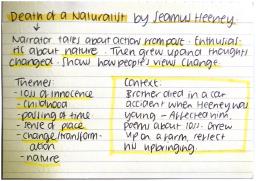 Death of a Naturalist by Seamus Heeney.
Narrator talks about action from past. Enthusias-
tic about nature. Then grew up and thoughts
changed. Show how people's view change.
Themes:
- loss of innocence
- childhood
- passing of time
- sense of place
- change/transform-
ation
- nature
Context:
Brother died in a car
accident when Heeney was
young - Affected him,
poems about loss. Grew
up on a farm, reflect
his upbringing.